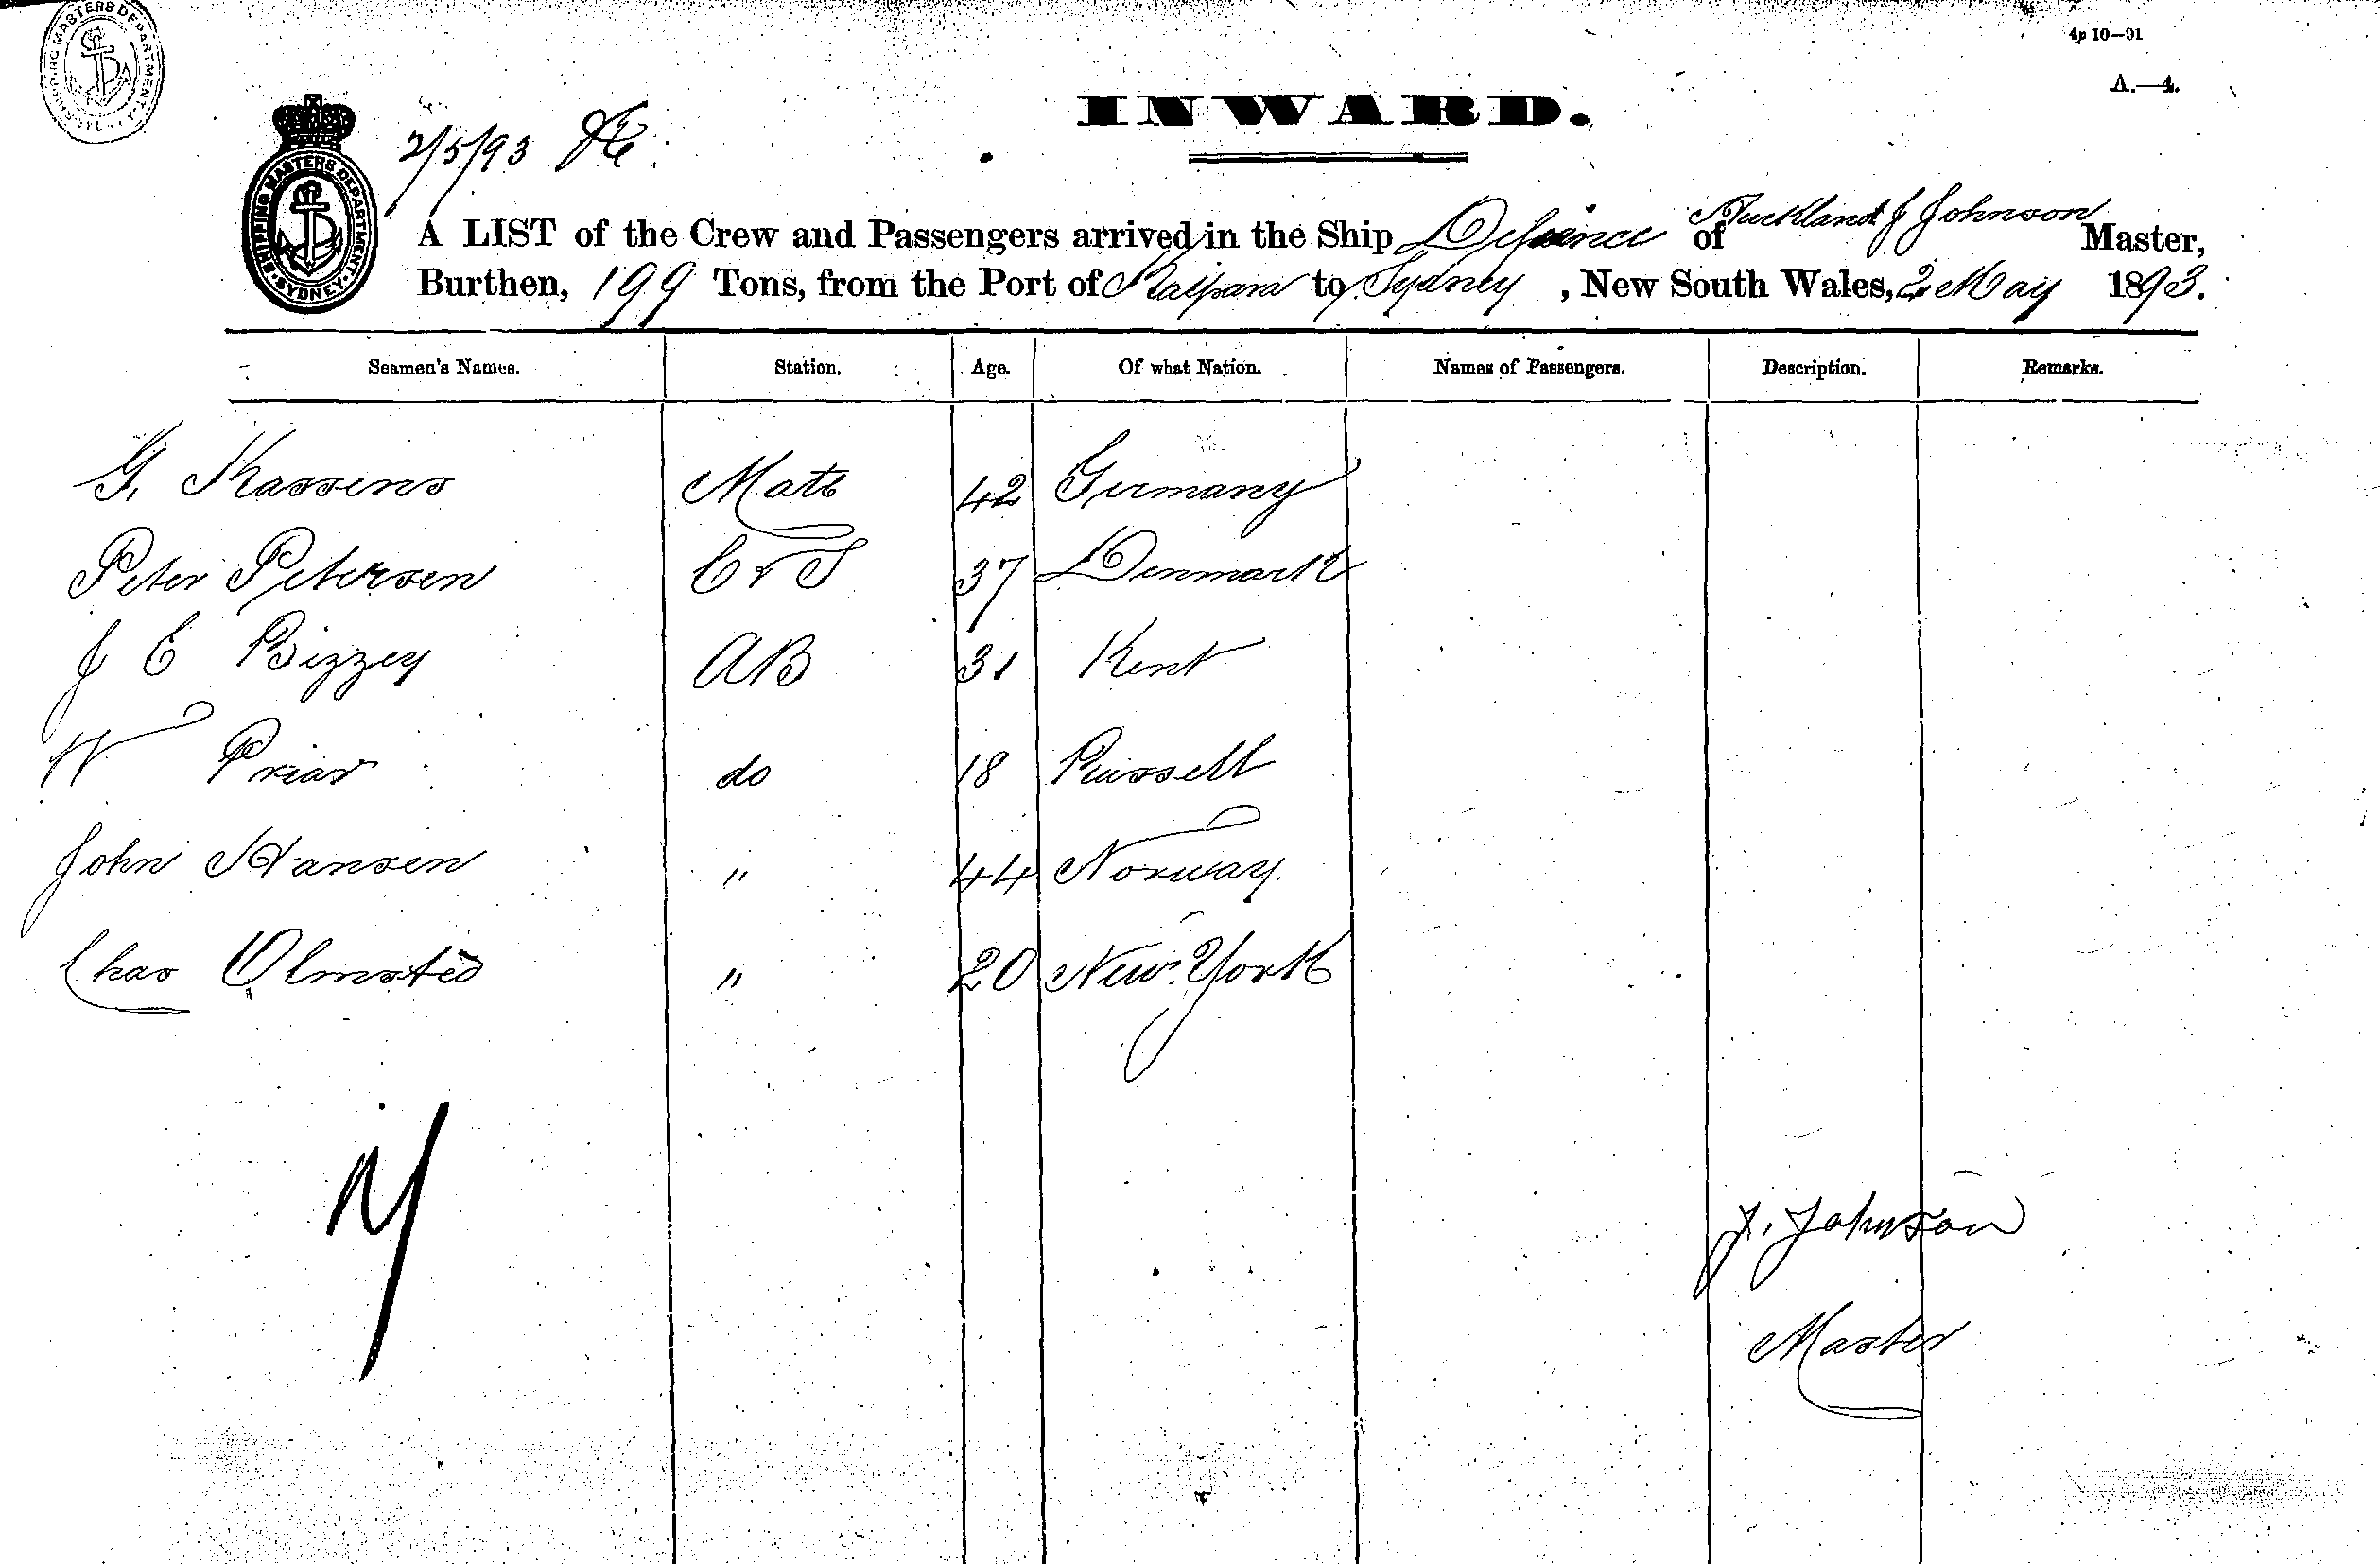 4p 10—91
A.—4.
INWARD.
2/5/93
SHIPPING MASTERS DEPARTMENT SYDNEY
A LIST of the Crew and Passengers arrived in the Ship Defience of Auckland J Johnson Master,
Burthen, 199 Tons, from the Port of Kaipara to Sydney, New South Wales, 2 May 1893.
Seamen's Names. Station. Age. Of what Nation. Names of Passengers. Description. Remarks.
G. Kassens Mate 42 Germany
Peter Petersen C & S 37 Denmark
J E Bizzey AB 31 Kent
W Priar do 18 Russell
John Hansen " 44 Norway
Chas Olmsted " 20 New York
J. Johnson
Master